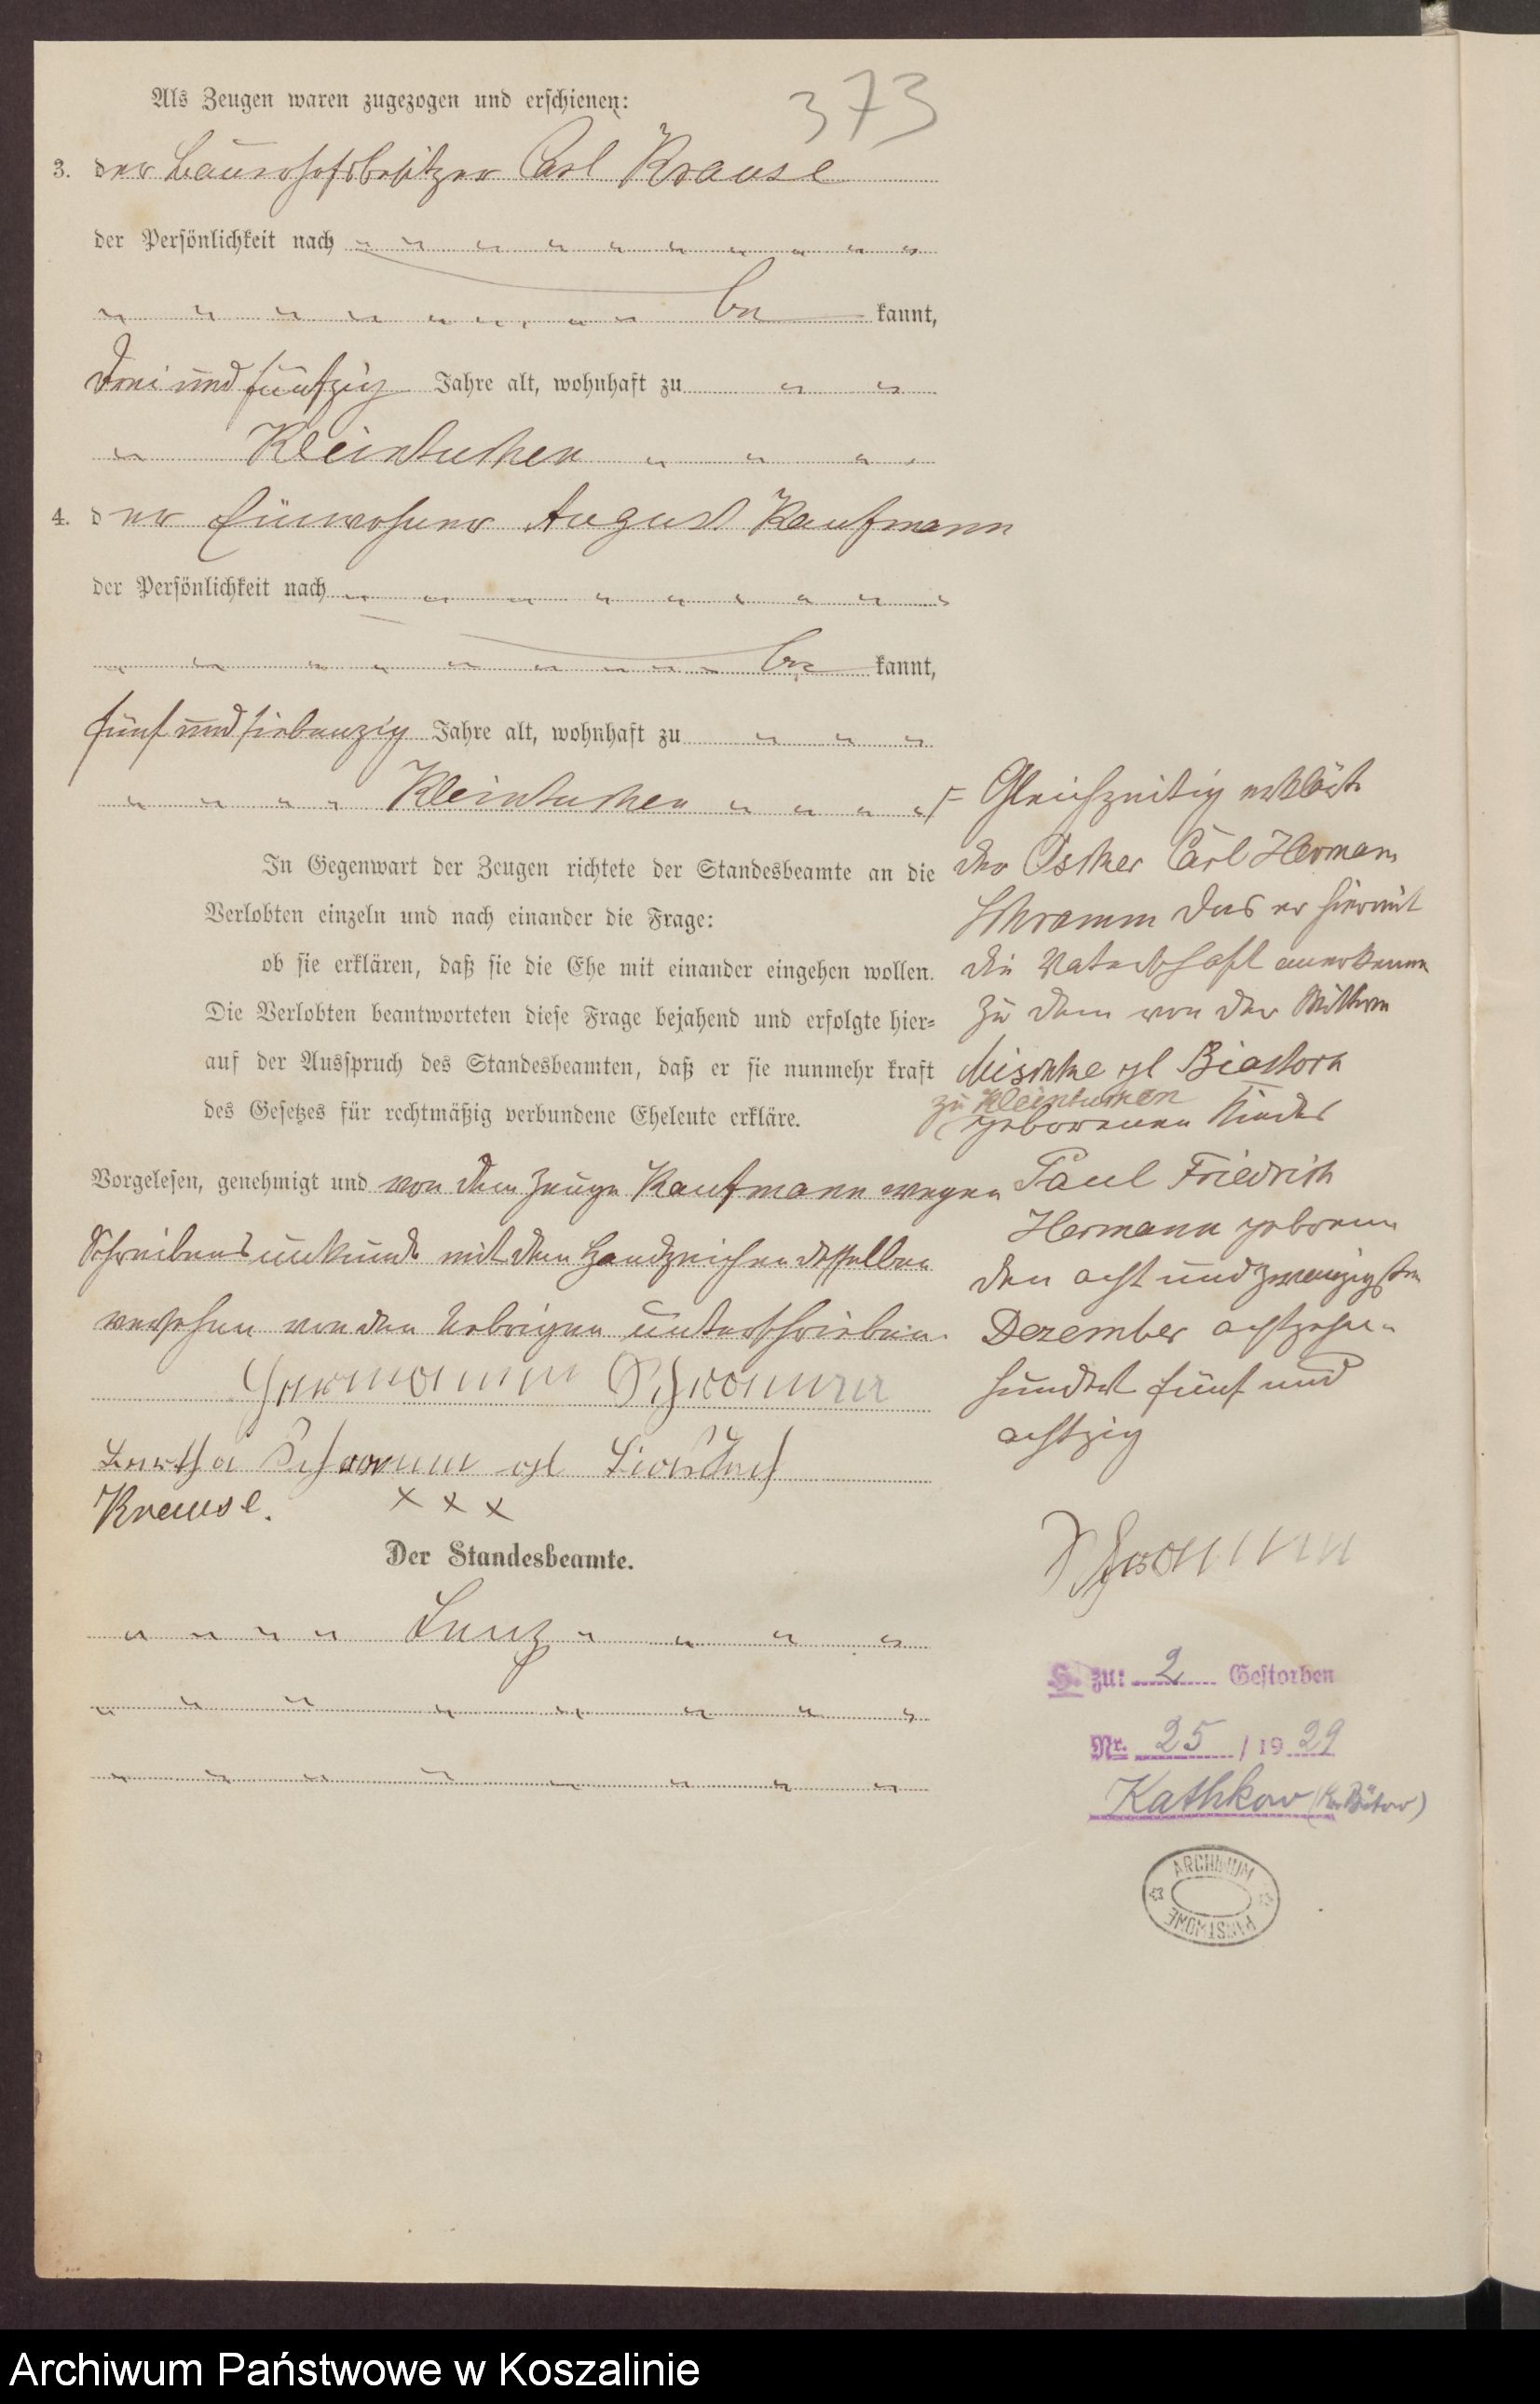 373
Als Zeugen waren zugezogen und erschienen:
3. der Bauerhofsbesitzer Carl Krause
der Persönlichkeit nach
be kannt,
drei und fünfzig Jahre alt, wohnhaft zu
Kleintuchen
4. der Einwohner August Kaufmann
der Persönlichkeit nach
be kannt,
fünf und siebenzig Jahre alt, wohnhaft zu
Kleintuchen
In Gegenwart der Zeugen richtete der Standesbeamte an die
Verlobten einzeln und nach einander die Frage:
ob sie erklären, daß sie die Ehe mit einander eingehen wollen.
Die Verlobten beantworteten diese Frage bejahend und erfolgte hier=
auf der Ausspruch des Standesbeamten, daß er sie nunmehr kraft
des Gesetzes für rechtmäßig verbundene Eheleute erkläre.
Vorgelesen, genehmigt und von dem Zeuge Kaufmann wegen
Schreibensunkunde mit dem Handzeichen desselben
versehen von den Uebrigen unterschrieben.
Hermann Schramm
Bertha Schramm
Krause. x x x
Der Standesbeamte.
Lenz
Gleichzeitig erklärte
der Carl Hermann
Schramm das er hiermit
die Vaterschaft anerkenne
zu dem von der
zu Kleintuchen
geborenen Kindes
Paul Friedrich
Hermann geboren
den acht und zwanzigsten
Dezember achtzehn
hundert fünf und
achtzig
Schramm
H. zu: 2 Gestorben
Nr. 25 / 1929
Kathkow (Kr. Bütow)
ARCHIWUM
PAŃSTWOWE
Archiwum Państwowe w Koszalinie